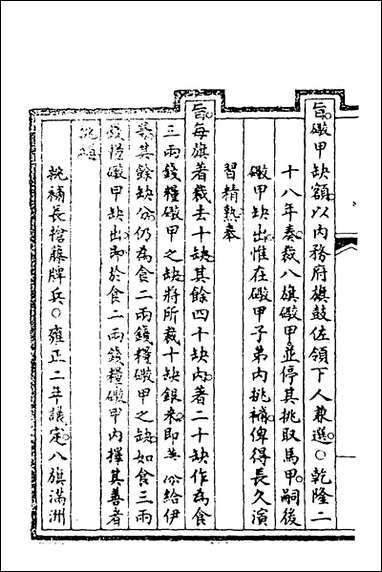 旨礮甲缺額以內務府旗鼓佐領下人兼選○乾隆二
十八年奏裁八旗礮甲並停其挑取馬甲嗣後
礮甲缺出惟在礮甲子弟內挑補俾得長久演
習精熟奉
旨每旗著裁去十缺其餘四十缺內著二十缺作為食
三兩錢糧礮甲之缺將所裁十缺銀來即
分給伊
等其餘缺分仍為食二兩錢糧礮甲之缺如食三兩
錢糧礮甲缺出即於食二兩錢糧礮甲內擇其善者
挑補
挑補長槍藤牌兵○雍正二年議定八旗滿洲